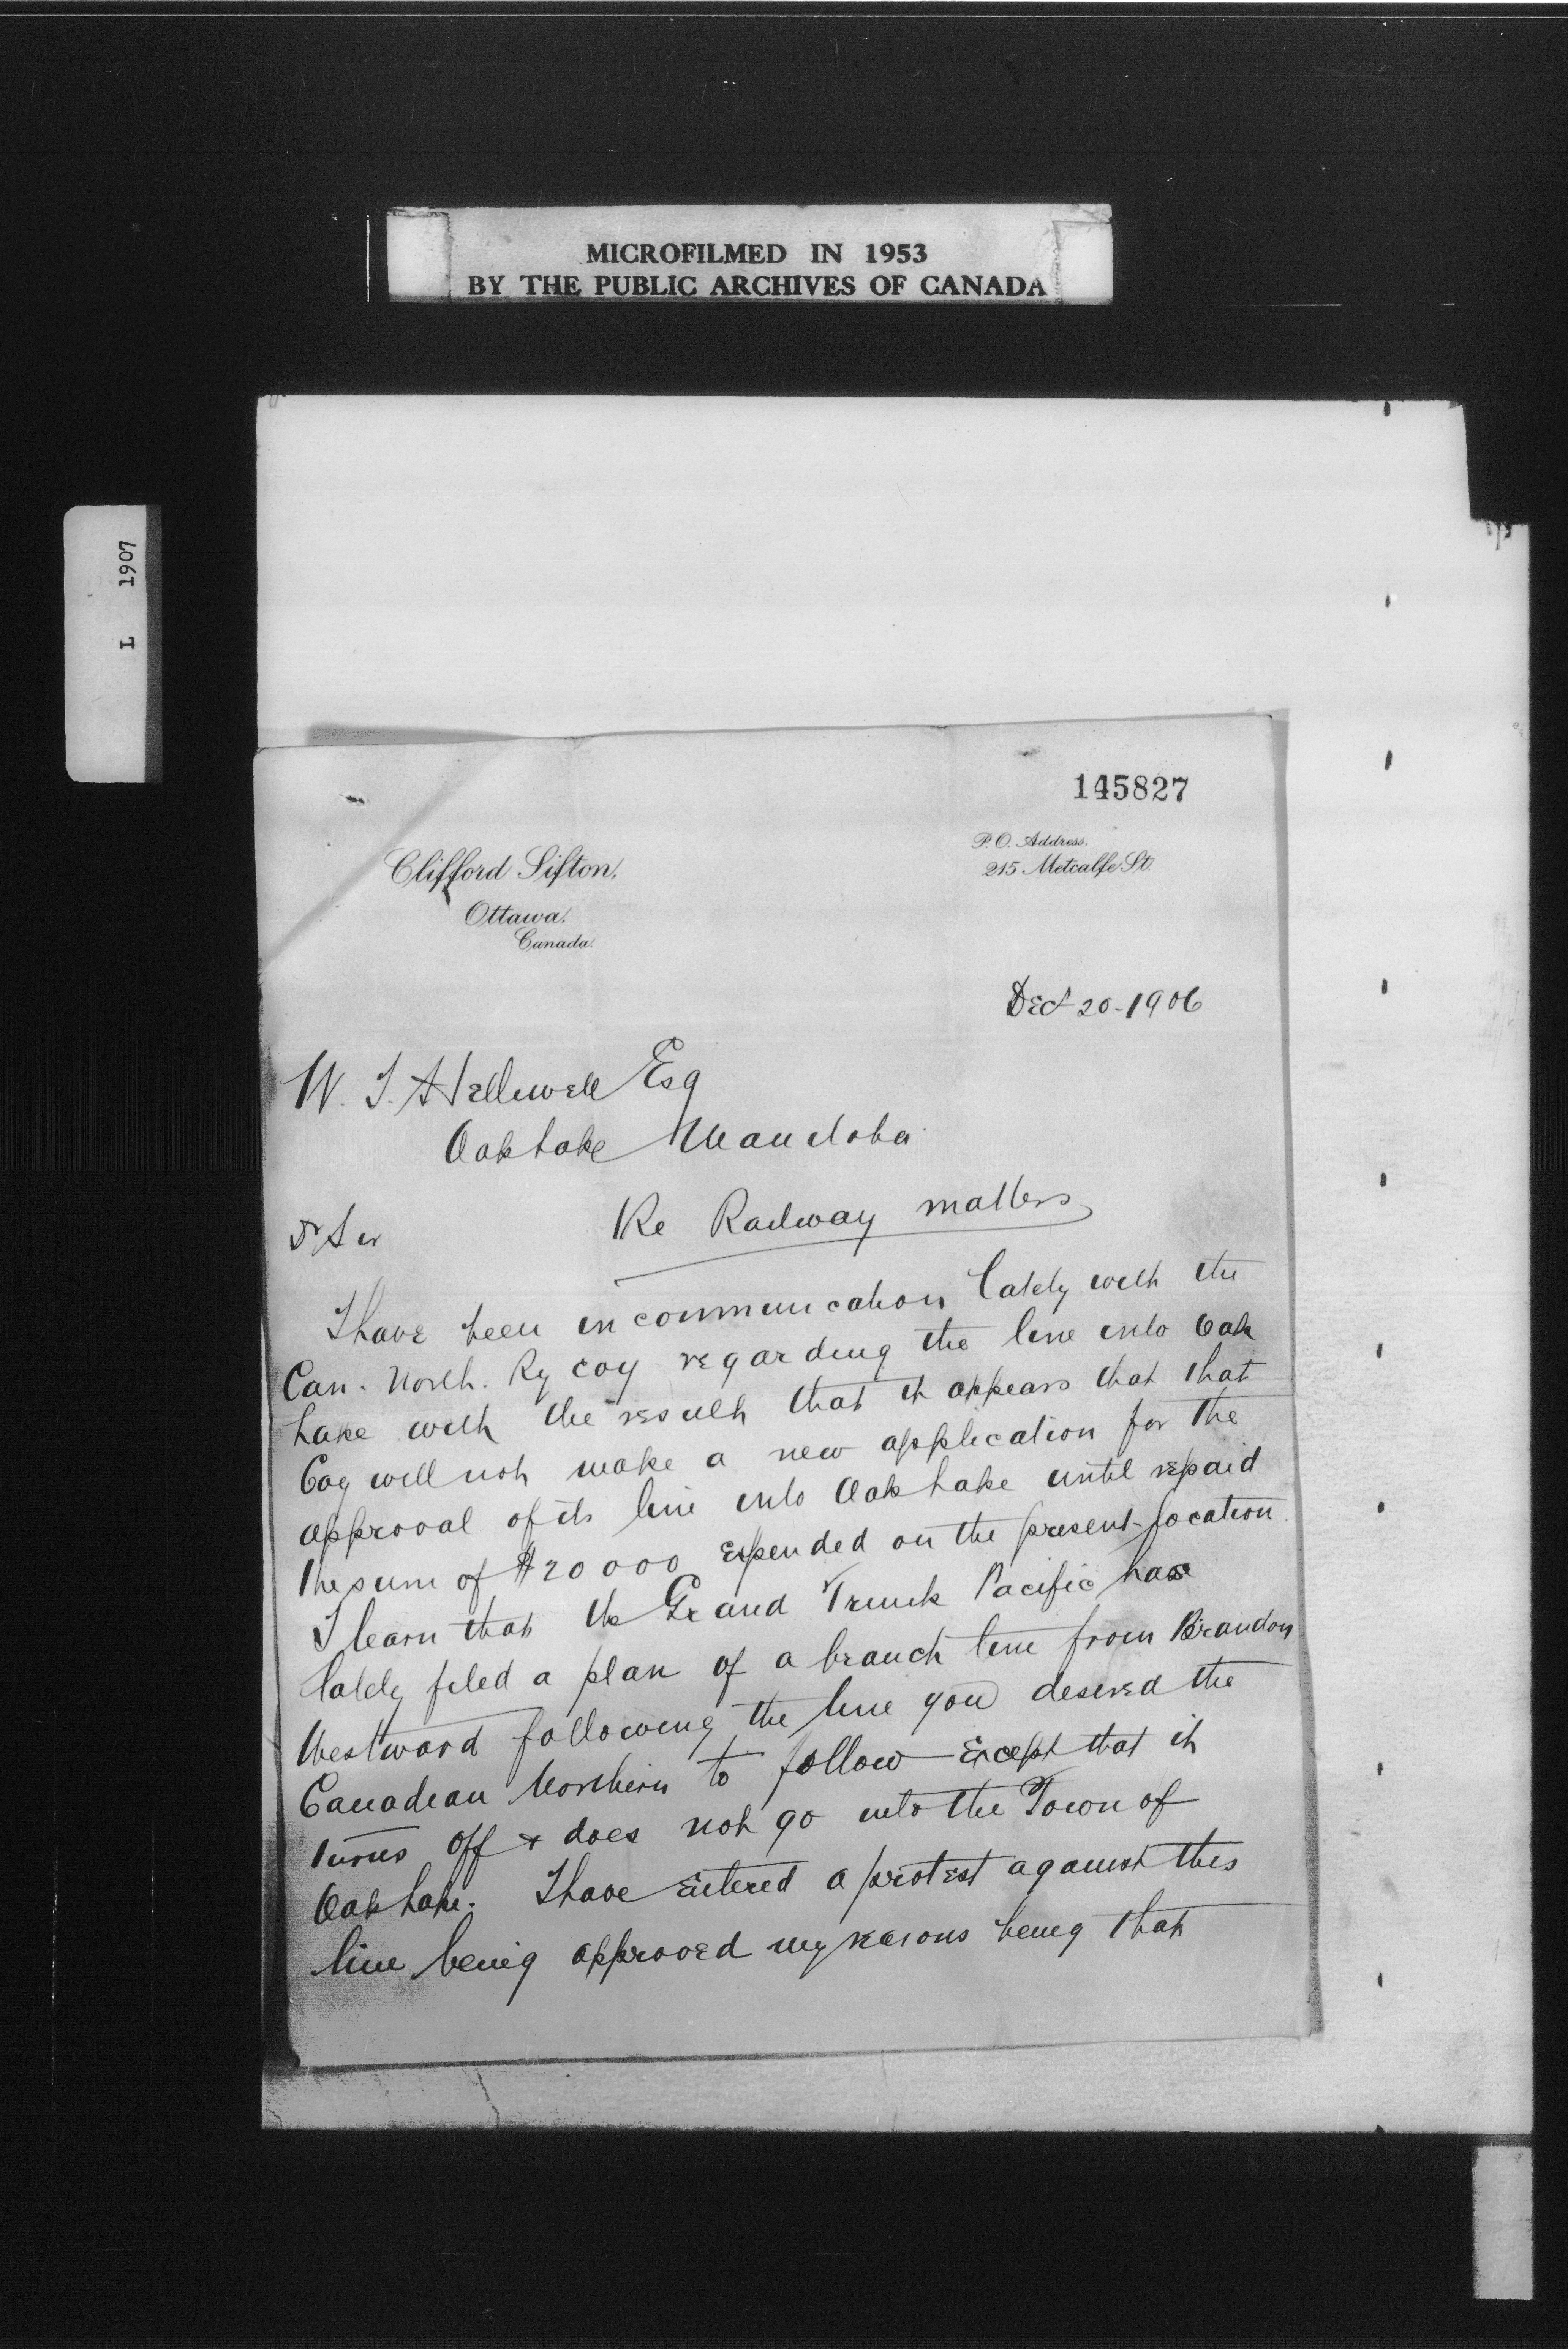 MICROFILMED IN 1953
BY THE PUBLIC ARCHIVES OF CANADA
L 1907
145827
Clifford Sifton,
Ottawa.
Canada.
P.O. Address.
215 Metcalfe St.
Dec 20-1906
W. J. Helliwell Esq
Oak Lake Manitoba
Re Railway matters
Dr Sir
I have been in communication lately with the
Can. North. Ry Coy regarding the line into Oak
Lake with the result that it appears that that
Coy will not make a new application for the
approval of its line into Oak Lake until repaid
the sum of $20000 expended on the present location.
I learn that the Grand Trunk Pacific have
lately filed a plan of a branch line from Brandon
Westward following the line you desired the
Canadian Northern to follow except that it
turns off & does not go into the Town of
Oak Lake. I have entered a protest against this
line being approved my reasons being that